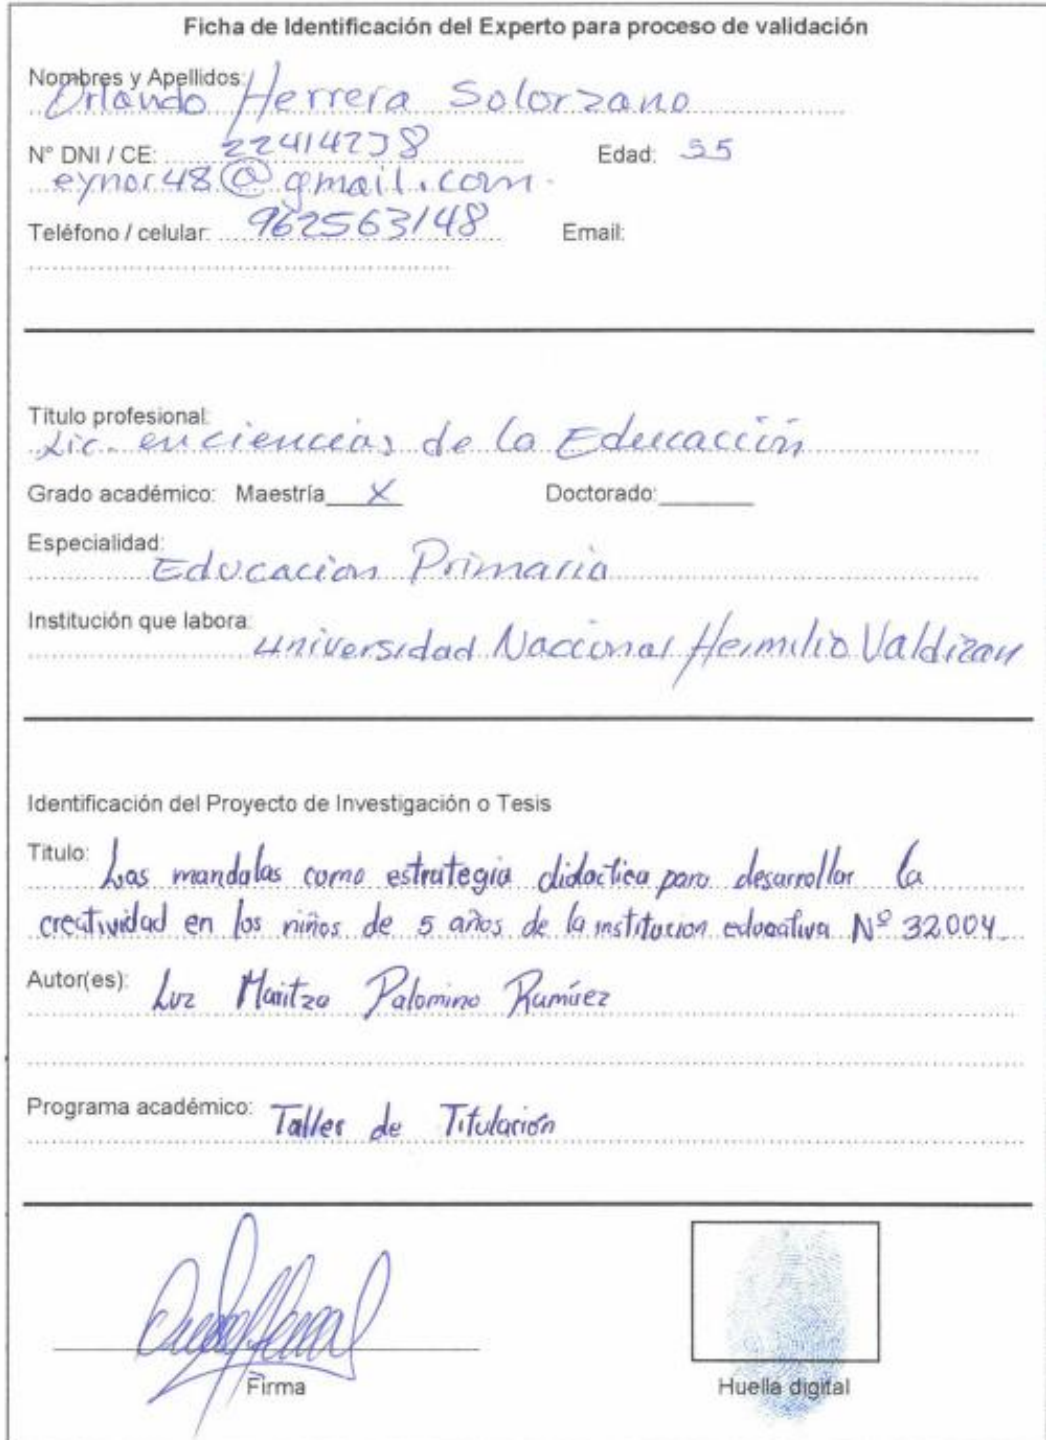 Ficha de Identificación del Experto para proceso de validación
Nombres y Apellidos:
Orlando Herrera Solorzano
N° DNI / CE: 22414238 Edad: 55
eynor48@gmail.com.
Teléfono / celular: 962563148 Email:
Título profesional:
Lic. en ciencias de la Educacción
Grado académico: Maestría X Doctorado:
Especialidad:
Educacion Primaria
Institución que labora:
Universidad Naccional Hermilio Valdizan
Identificación del Proyecto de Investigación o Tesis
Titulo: Las mandalas como estrategia didactica para desarrollar la
creatividad en los niños de 5 años de la institucion educativa Nº 32004.
Autor(es): Luz Maritza Palomino Ramírez
Programa académico: Taller de Titulación
Firma Huella digital